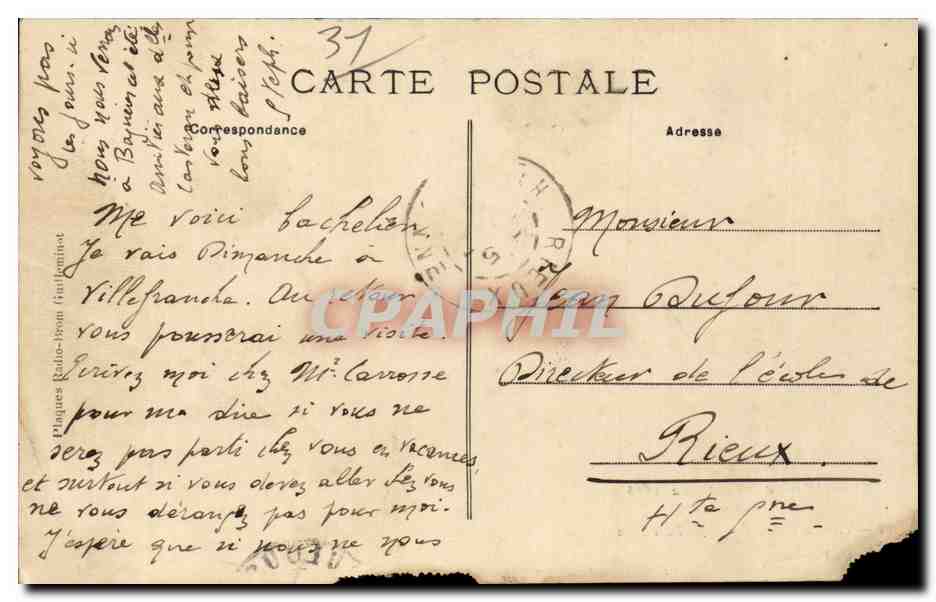 31
CARTE POSTALE
Correspondance
Adresse
Me voici bachelier.
Je vais Dimanche à
Villefranche. Au retour
vous pousserai une visite.
Ecrivez moi chez Mr Carrosse
pour me dire si vous ne
serez pas parti chez vous en vacances,
et surtout si vous devez aller chez vous
ne vous dérangez pas pour moi.
J'espère que si nous ne nous
voyons pas
ces jours-ci
nous nous verrons
à Bagnères cet été
Amitiés aux
et pour
vous
bons baisers
Steph.
Monsieur
Jean Dufour
Directeur de l'école de
Rieux.
Hte Gne
RIEUX
Plaques Radio-Brom Guilleminot
CPAPHIL